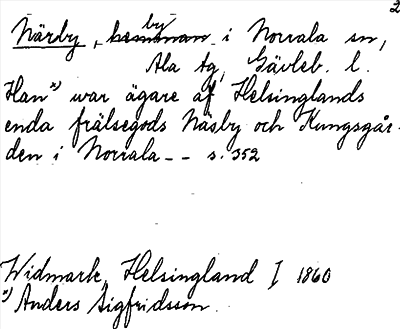 2
Närby, by i Norrala sn,
Ala tg, Gävleb. l.
Han x) var ägare af Helsinglands
enda frälsegods Näsby och Kungsgår-
den i Norrala -- s. 352
Widmark, Helsingland I 1860
x) Anders Sigfridsson.